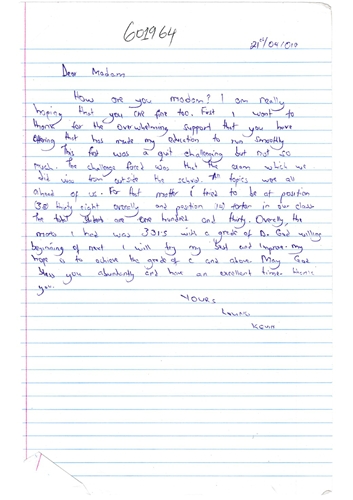 601964
21st/04/010
Dear Madam
How are you madam? I am really
hoping that you are fine too. First I want to
thank for the overwhelming support that you have
offering that has made my education to run smoothly
This first was a quit challenging but not so
much. The challenge faced was that the exam which we
did was from outside the school. topics were all
ahead of us. For that matter I tried to be at position
38 thirty eight overally and position in our class
The total are one hundred and thirty. Overally the
marks I had was 391.5 with a grade of D+. God willing
beginning of next I will try my best and improve. My
hope is to achieve the grade of C and above. May God
bless you abundantly and have an excellent time. thank
you.
Yours
Loving
Kevin